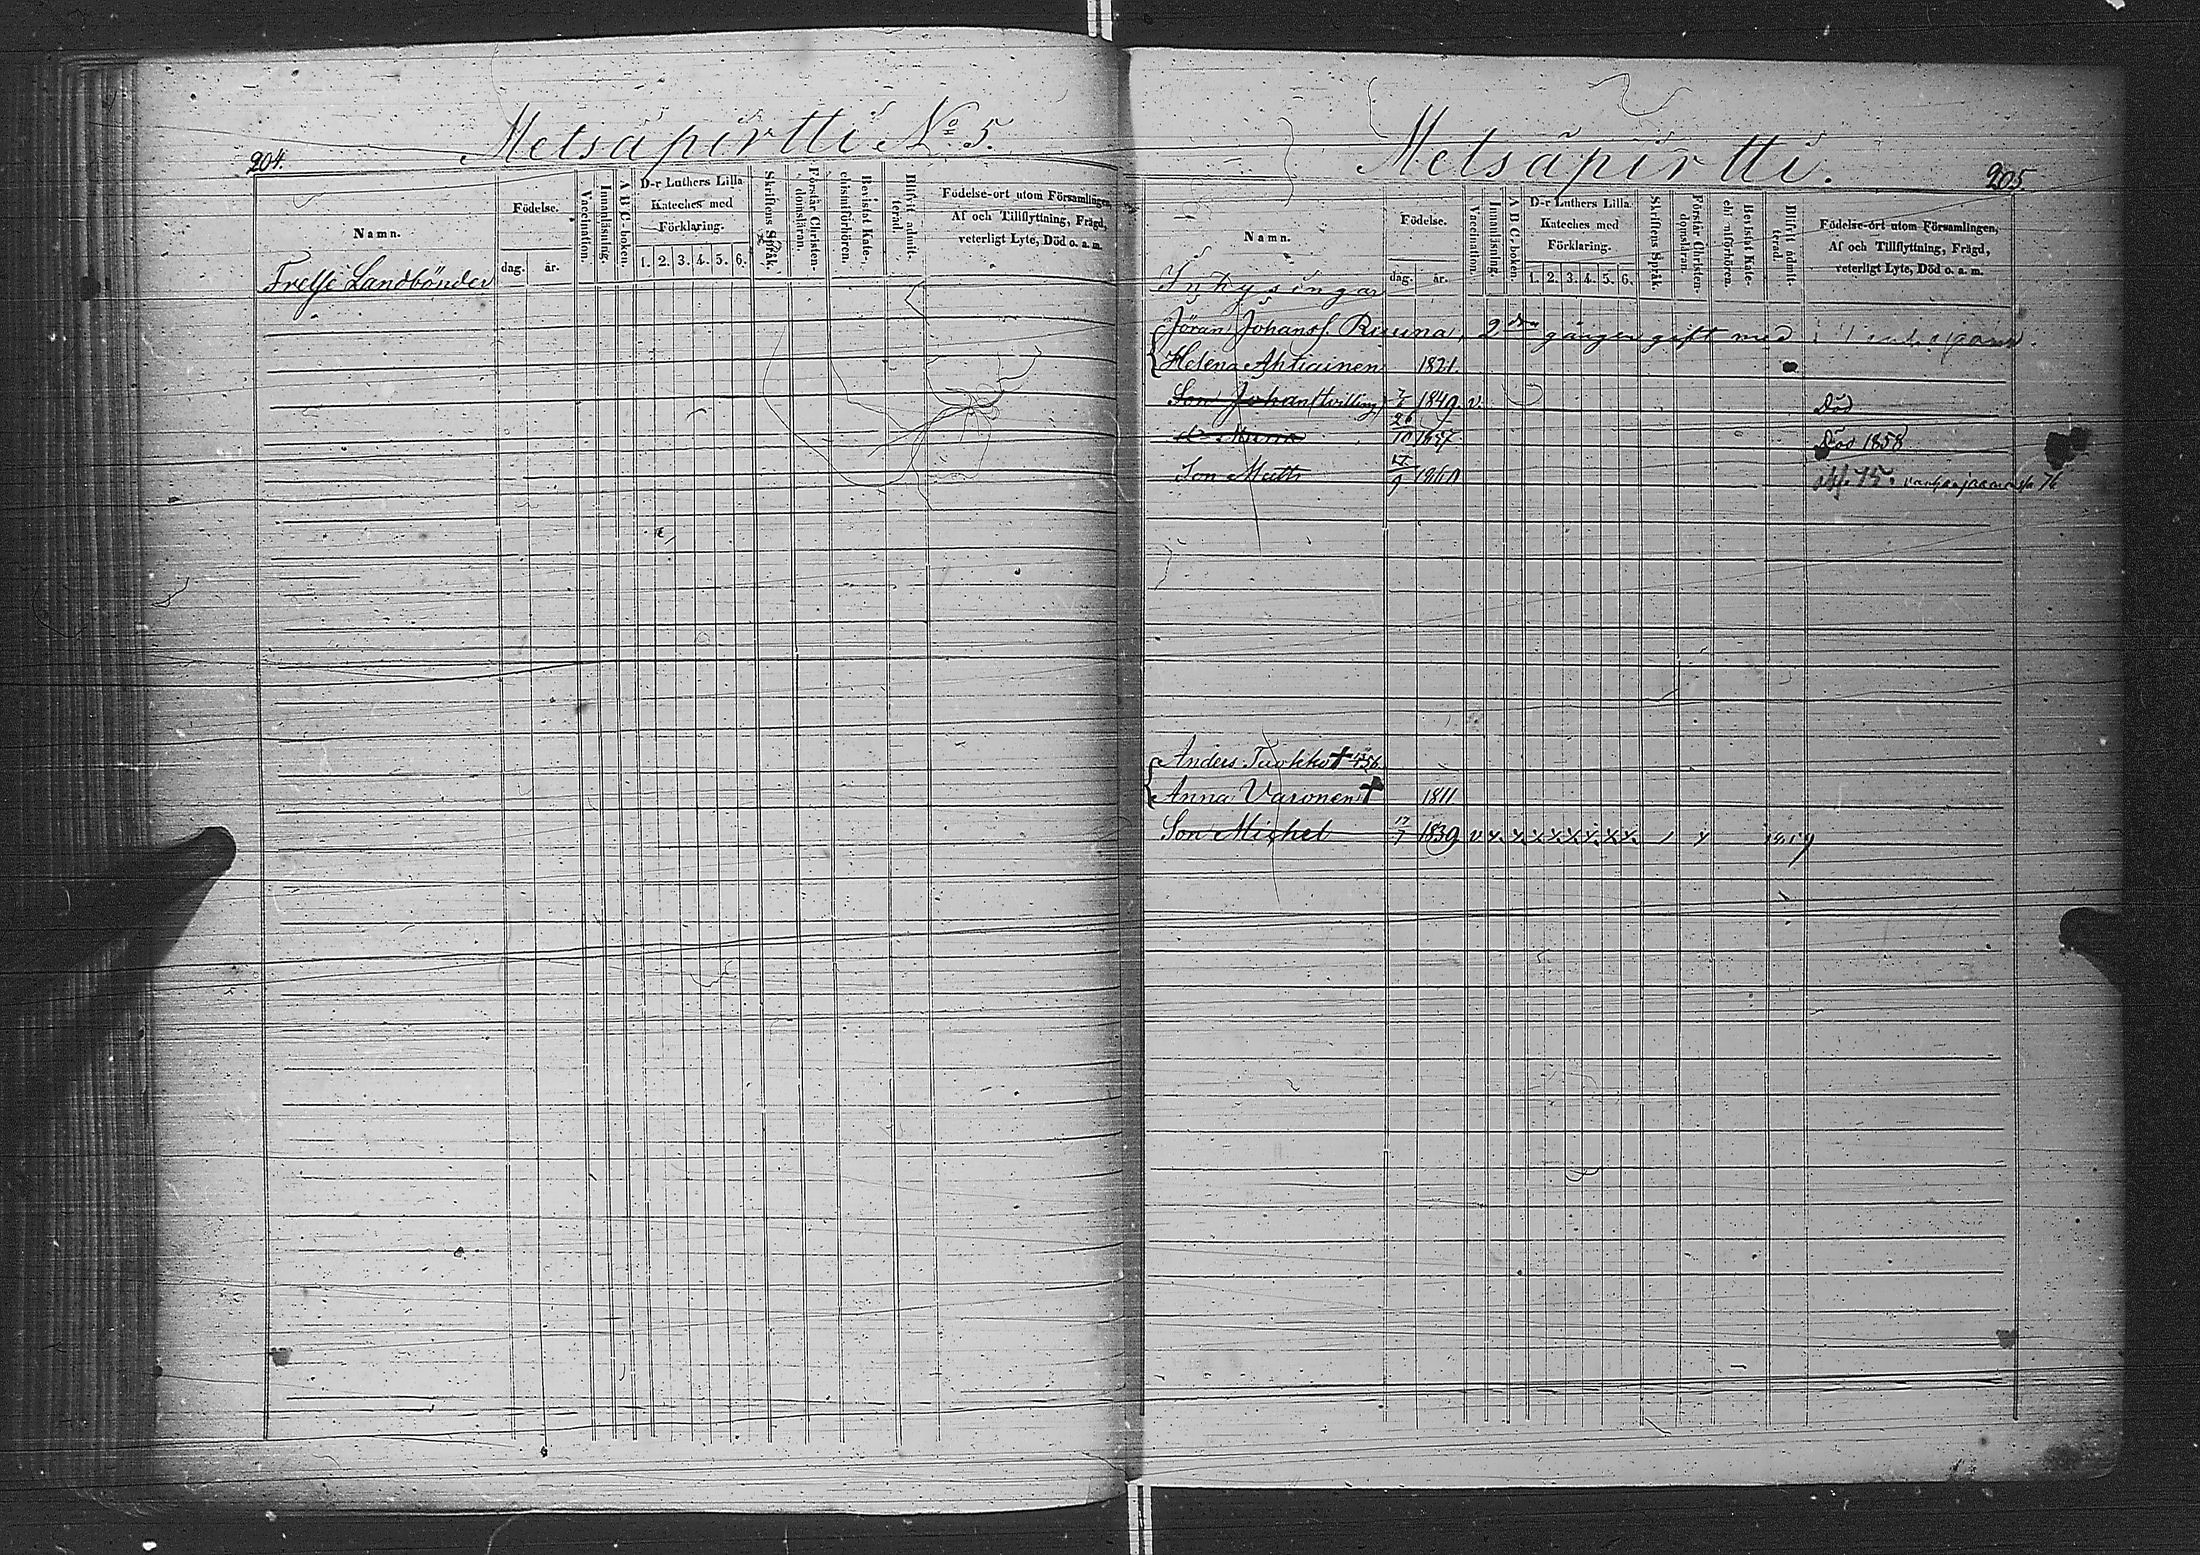 204.
Metsäpirtti No 5.
Namn.
Födelse.
dag. år.
Vaccination.
Innanläsning.
A B C-boken.
D-r Luthers Lilla
Kateches med
Förklaring.
1. 2. 3. 4. 5. 6.
Skriftens Språk.
Förstår Christen-
domsläran.
Bevistat Kate-
chismiförhören.
Blifvit admit-
terad.
Födelse-ort utom Församlingen,
Af och Tillflyttning, Frägd,
veterligt Lyte, Död o. a. m.
Frelse Landbönder
Metsäpirtti.
205
Namn.
Födelse.
dag. år.
Vaccination.
Innanläsning.
A B C-boken.
D-r Luthers Lilla
Kateches med
Förklaring.
1. 2. 3. 4. 5. 6.
Skriftens Språk.
Förstår Christen-
domsläran.
Bevistat Kate-
chismiförhören.
Blifvit admit-
terad.
Födelse-ort utom Församlingen,
Af och Tillflyttning, Frägd,
veterligt Lyte, Död o. a. m.
Inhysingar
Jöran Johanss. 2dra gången gift med
Helena Ahtiainen 1821.
Son Johan (tvilling) 1849. v. Död
Maria 26/10 1857 Död 1858
Son Matts
Anders Tuokko † 56
Anna Varonen † 1811
Son Michel 1839 v x x x x x x x x